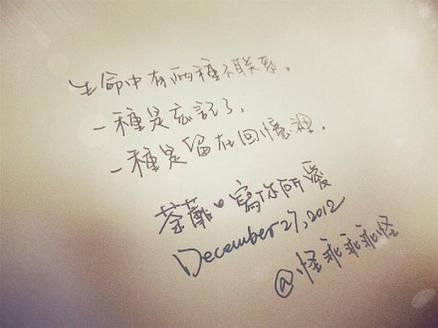 生命中有兩種不联系，
一種是忘記了，
一種是留在回憶裡．
荼蘼。寫你所愛
December 27, 2012
@怪乖乖乖怪